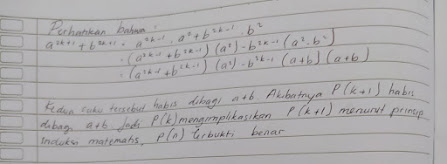 Perhatikan bahwa:
a^2k+1 + b^2k+1 = a^2k-1 . a^2 + b^2k-1 . b^2
= (a^2k-1 + b^2k-1) (a^2) - b^2k-1 (a^2 - b^2)
= (a^2k-1 + b^2k-1) (a^2) - b^2k-1 (a+b) (a+b)
Kedua suku tersebut habis dibagi a+b Akibatnya P(k+1) habis
dibagi a+b Jadi P(k) mengimplikasikan P(k+1) menurut prinsip
induksi matematis, P(n) terbukti benar